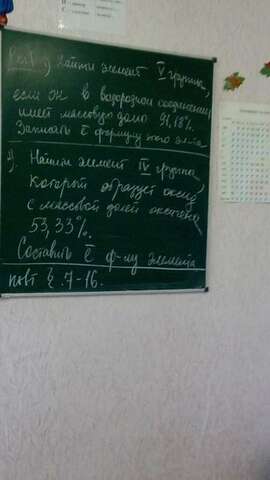 1) Найти элемент V группы,
если он в водородном соединении
имеет массовую долю 91,18%.
Записать ē формулу этого эл-та
2) Найти элемент IV группы,
который образует оксид
с массовой долей кислорода
53,33%.
Составить ē ф-лу элемента
повт § 7-16.